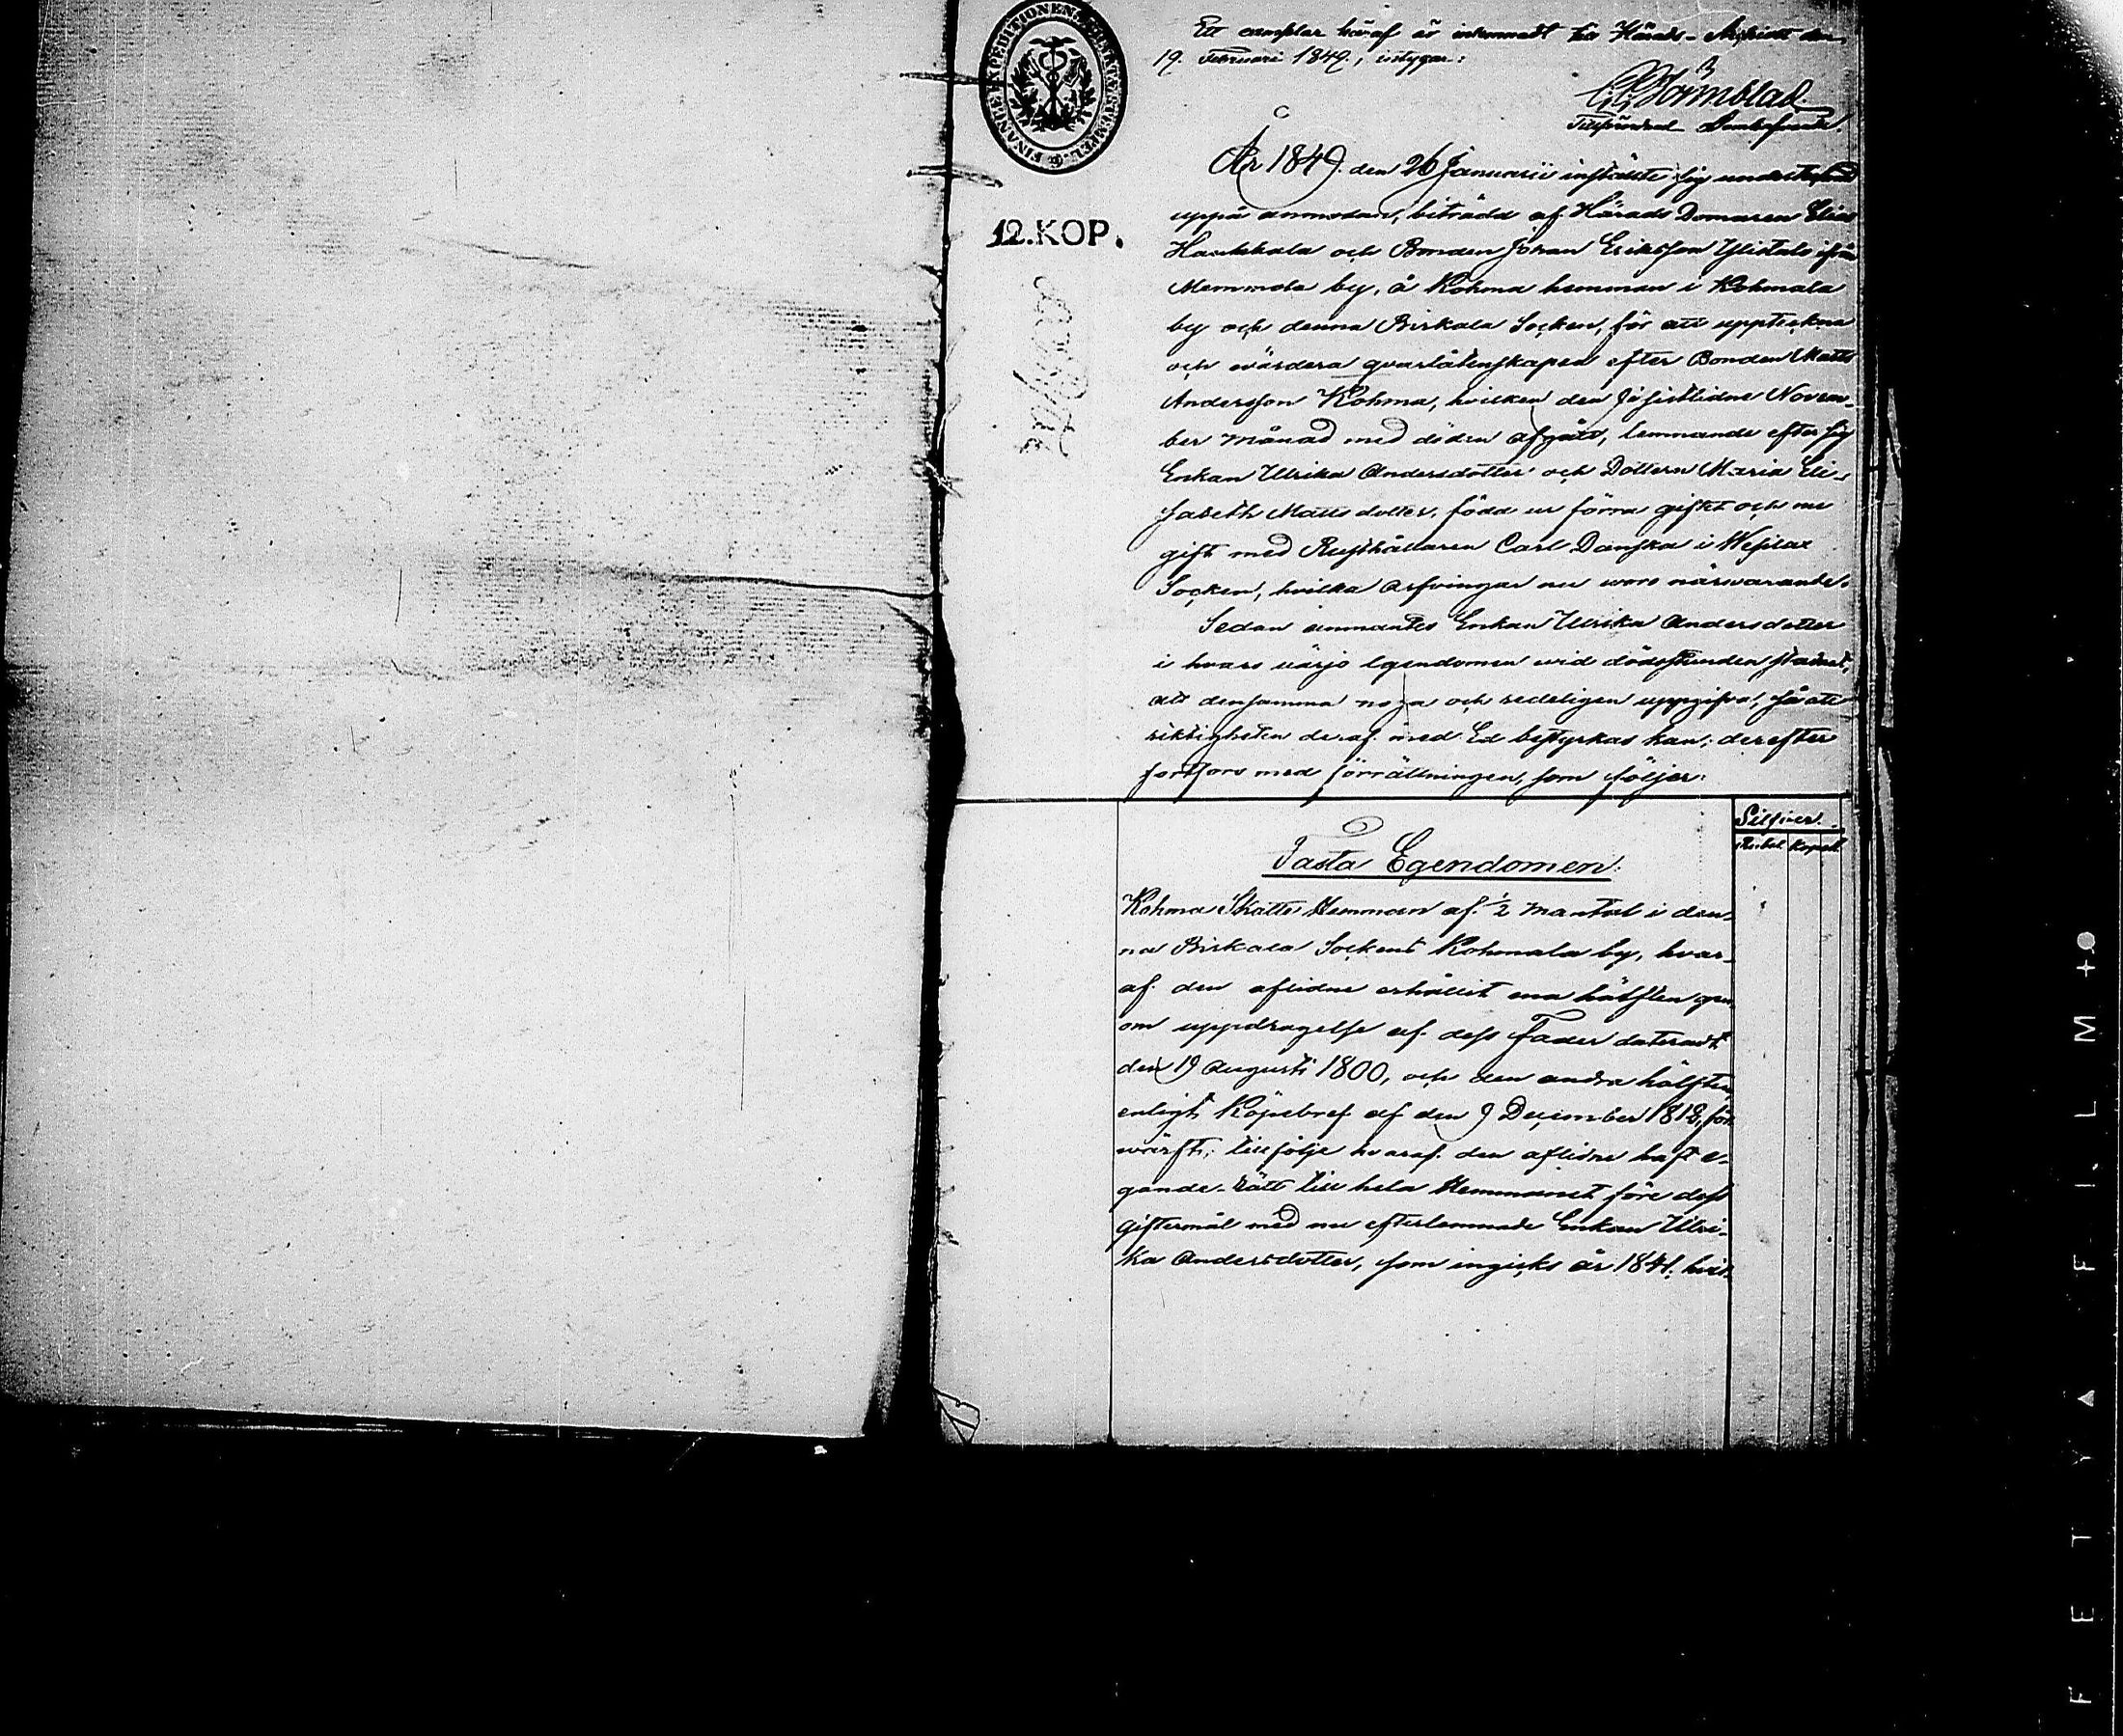 Ett exemplar häraf är inlemnadt till Härads-Arkivet den
19. Februari 1849., intygar:
Tillförordnad Domhafvande.
FINANCE EXPEDITIONEN. CHARTÆ STEMPEL.
12. KOP.
År 1849. den 26 Januarii inställte sig undertecknad
uppå anmodan, biträdd af Härads Domaren Elias
Haukkala och Bonden Johan Eriksson Ylistalo ifrån
Memmola by, å Kohma hemman i Kohmala
by och denna Birkala Socken, för att uppteckna
och värdera qvarlåtenskapen efter Bonden Matts
Andersson Kohma, hvilken den sistlidne Novem-
ber månad med döden afgått, lemnande efter sig
Enkan Ulrika Andersdotter och Dottern Maria Eli-
sabeth Mattsdotter, född ur förra giftet och nu
gift med Rusthållaren Carl Danska i Wesilax
Socken, hvilka arfvingar nu woro närwarande.
Sedan anmantes Enkan Ulrika Andersdotter
i hvars värjo egendomen wid dödsstunden stadnat,
att densamma noga och redeligen uppgifva, så att
riktigheten deraf med Ed bestyrkas kan; derefter
fortfors med förrättningen, som följer:
Silfver.
Rubel Kopek
Fasta Egendomen:
Kohma Skatte Hemman af 1/2 mantal i den-
na Birkala Sockens Kohmala by, hvar-
af den aflidne erhållit ena hälften gen-
om uppdragelse af dess Fader dateradt
den 19 Augusti 1800, och den andra hälften
enligt Köpebref af den 9 December 1818, för-
wärft; till följe hvaraf den aflidne haft e-
gande-rätt till hela Hemmanet före dess
giftermål med nu efterlemnade Enkan Ulri-
ka Andersdotter, som ingicks år 1841. hvil-
FETYAFILM